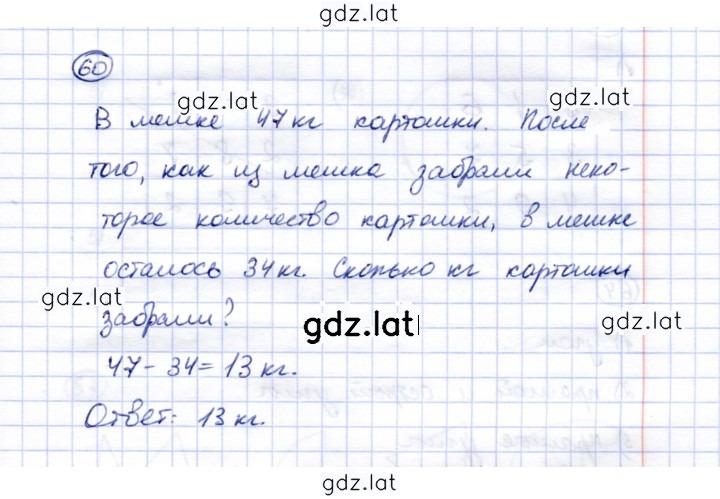 gdz.lat
60
gdz.lat
gdz.lat
В мешке 47 кг картошки. После
того, как из мешка забрали неко-
торое количество картошки, в мешке
осталось 34 кг. Сколько кг картошки
gdz.lat
забрали?
gdz.lat
47 - 34 = 13 кг.
Ответ: 13 кг.
gdz.lat